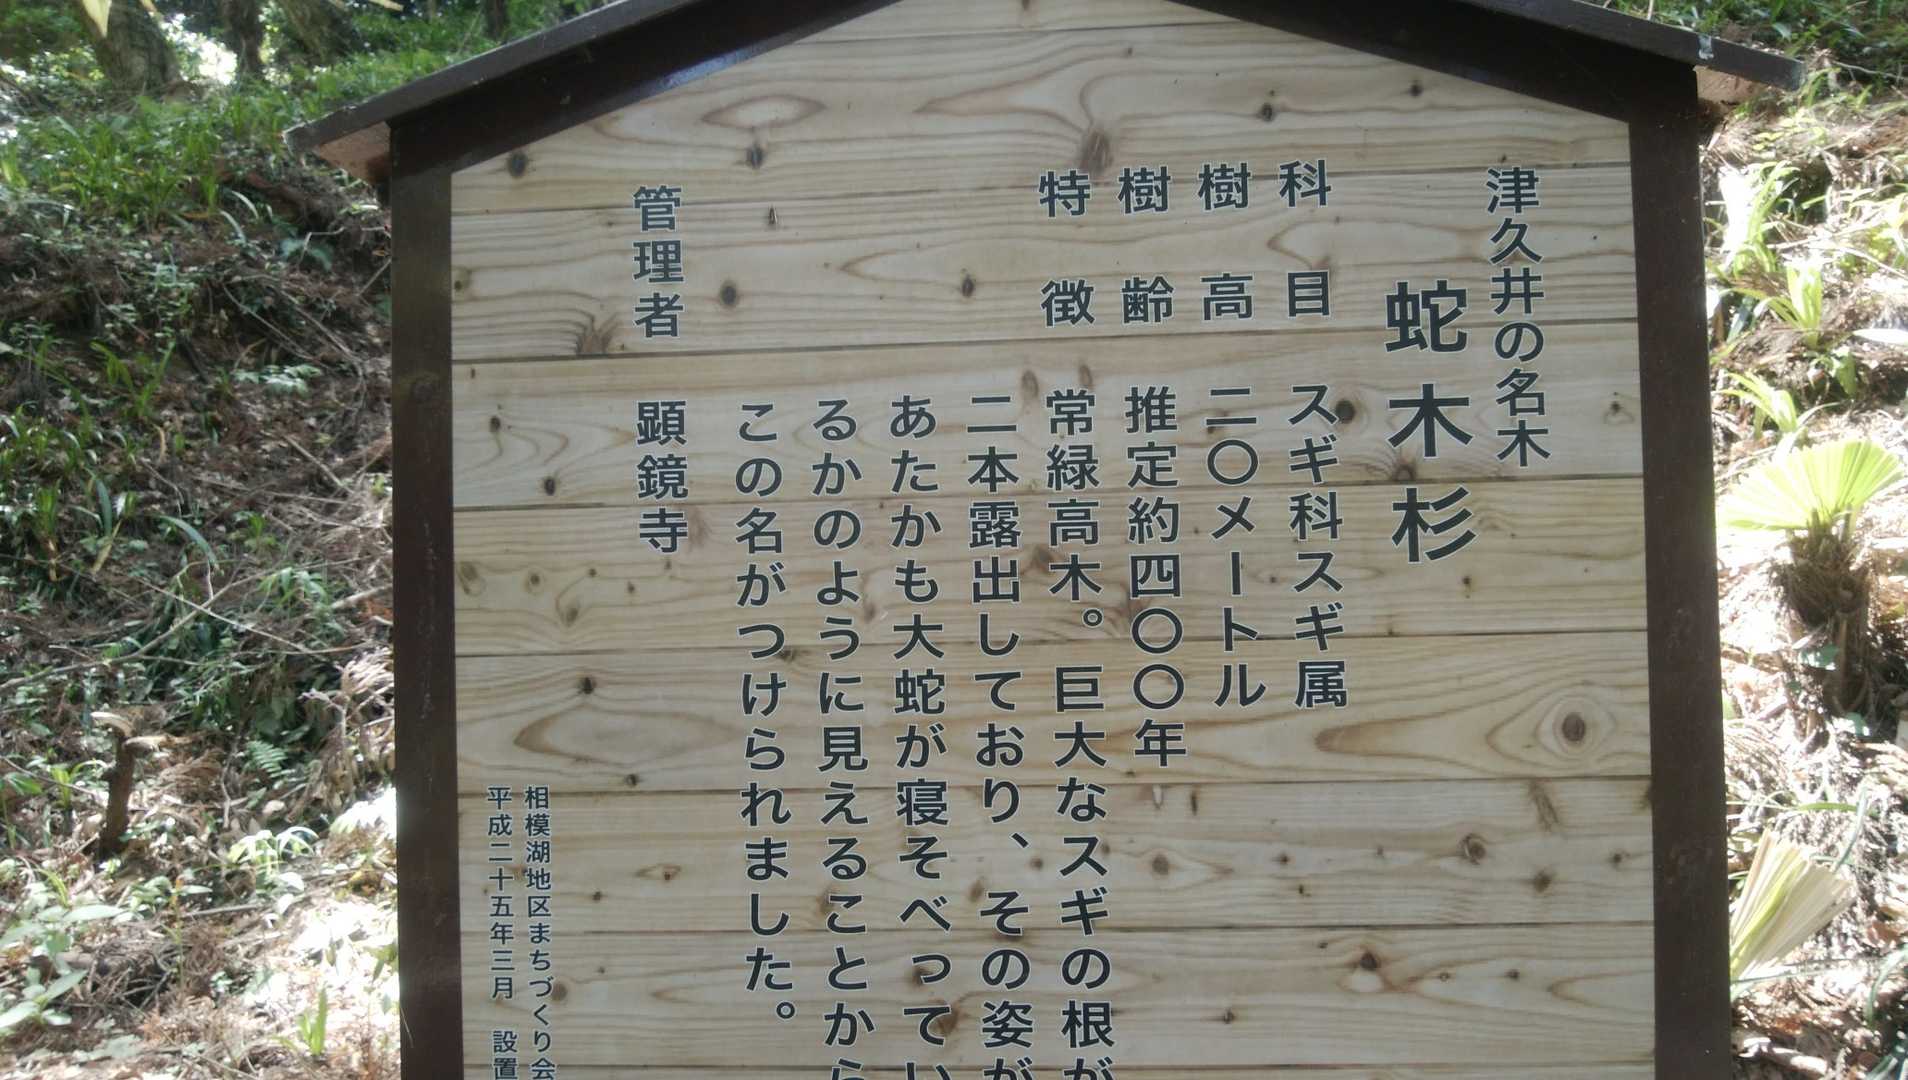 津久井の名木
蛇木杉
科目 スギ科スギ属
樹高 二〇メートル
樹齢 推定約四〇〇年
特徴 常緑高木。巨大なスギの根が
二本露出しており、その姿が
あたかも大蛇が寝そべってい
るかのように見えることから
この名がつけられました。
管理者 顕鏡寺
相模湖地区まちづくり会
平成二十五年三月 設置